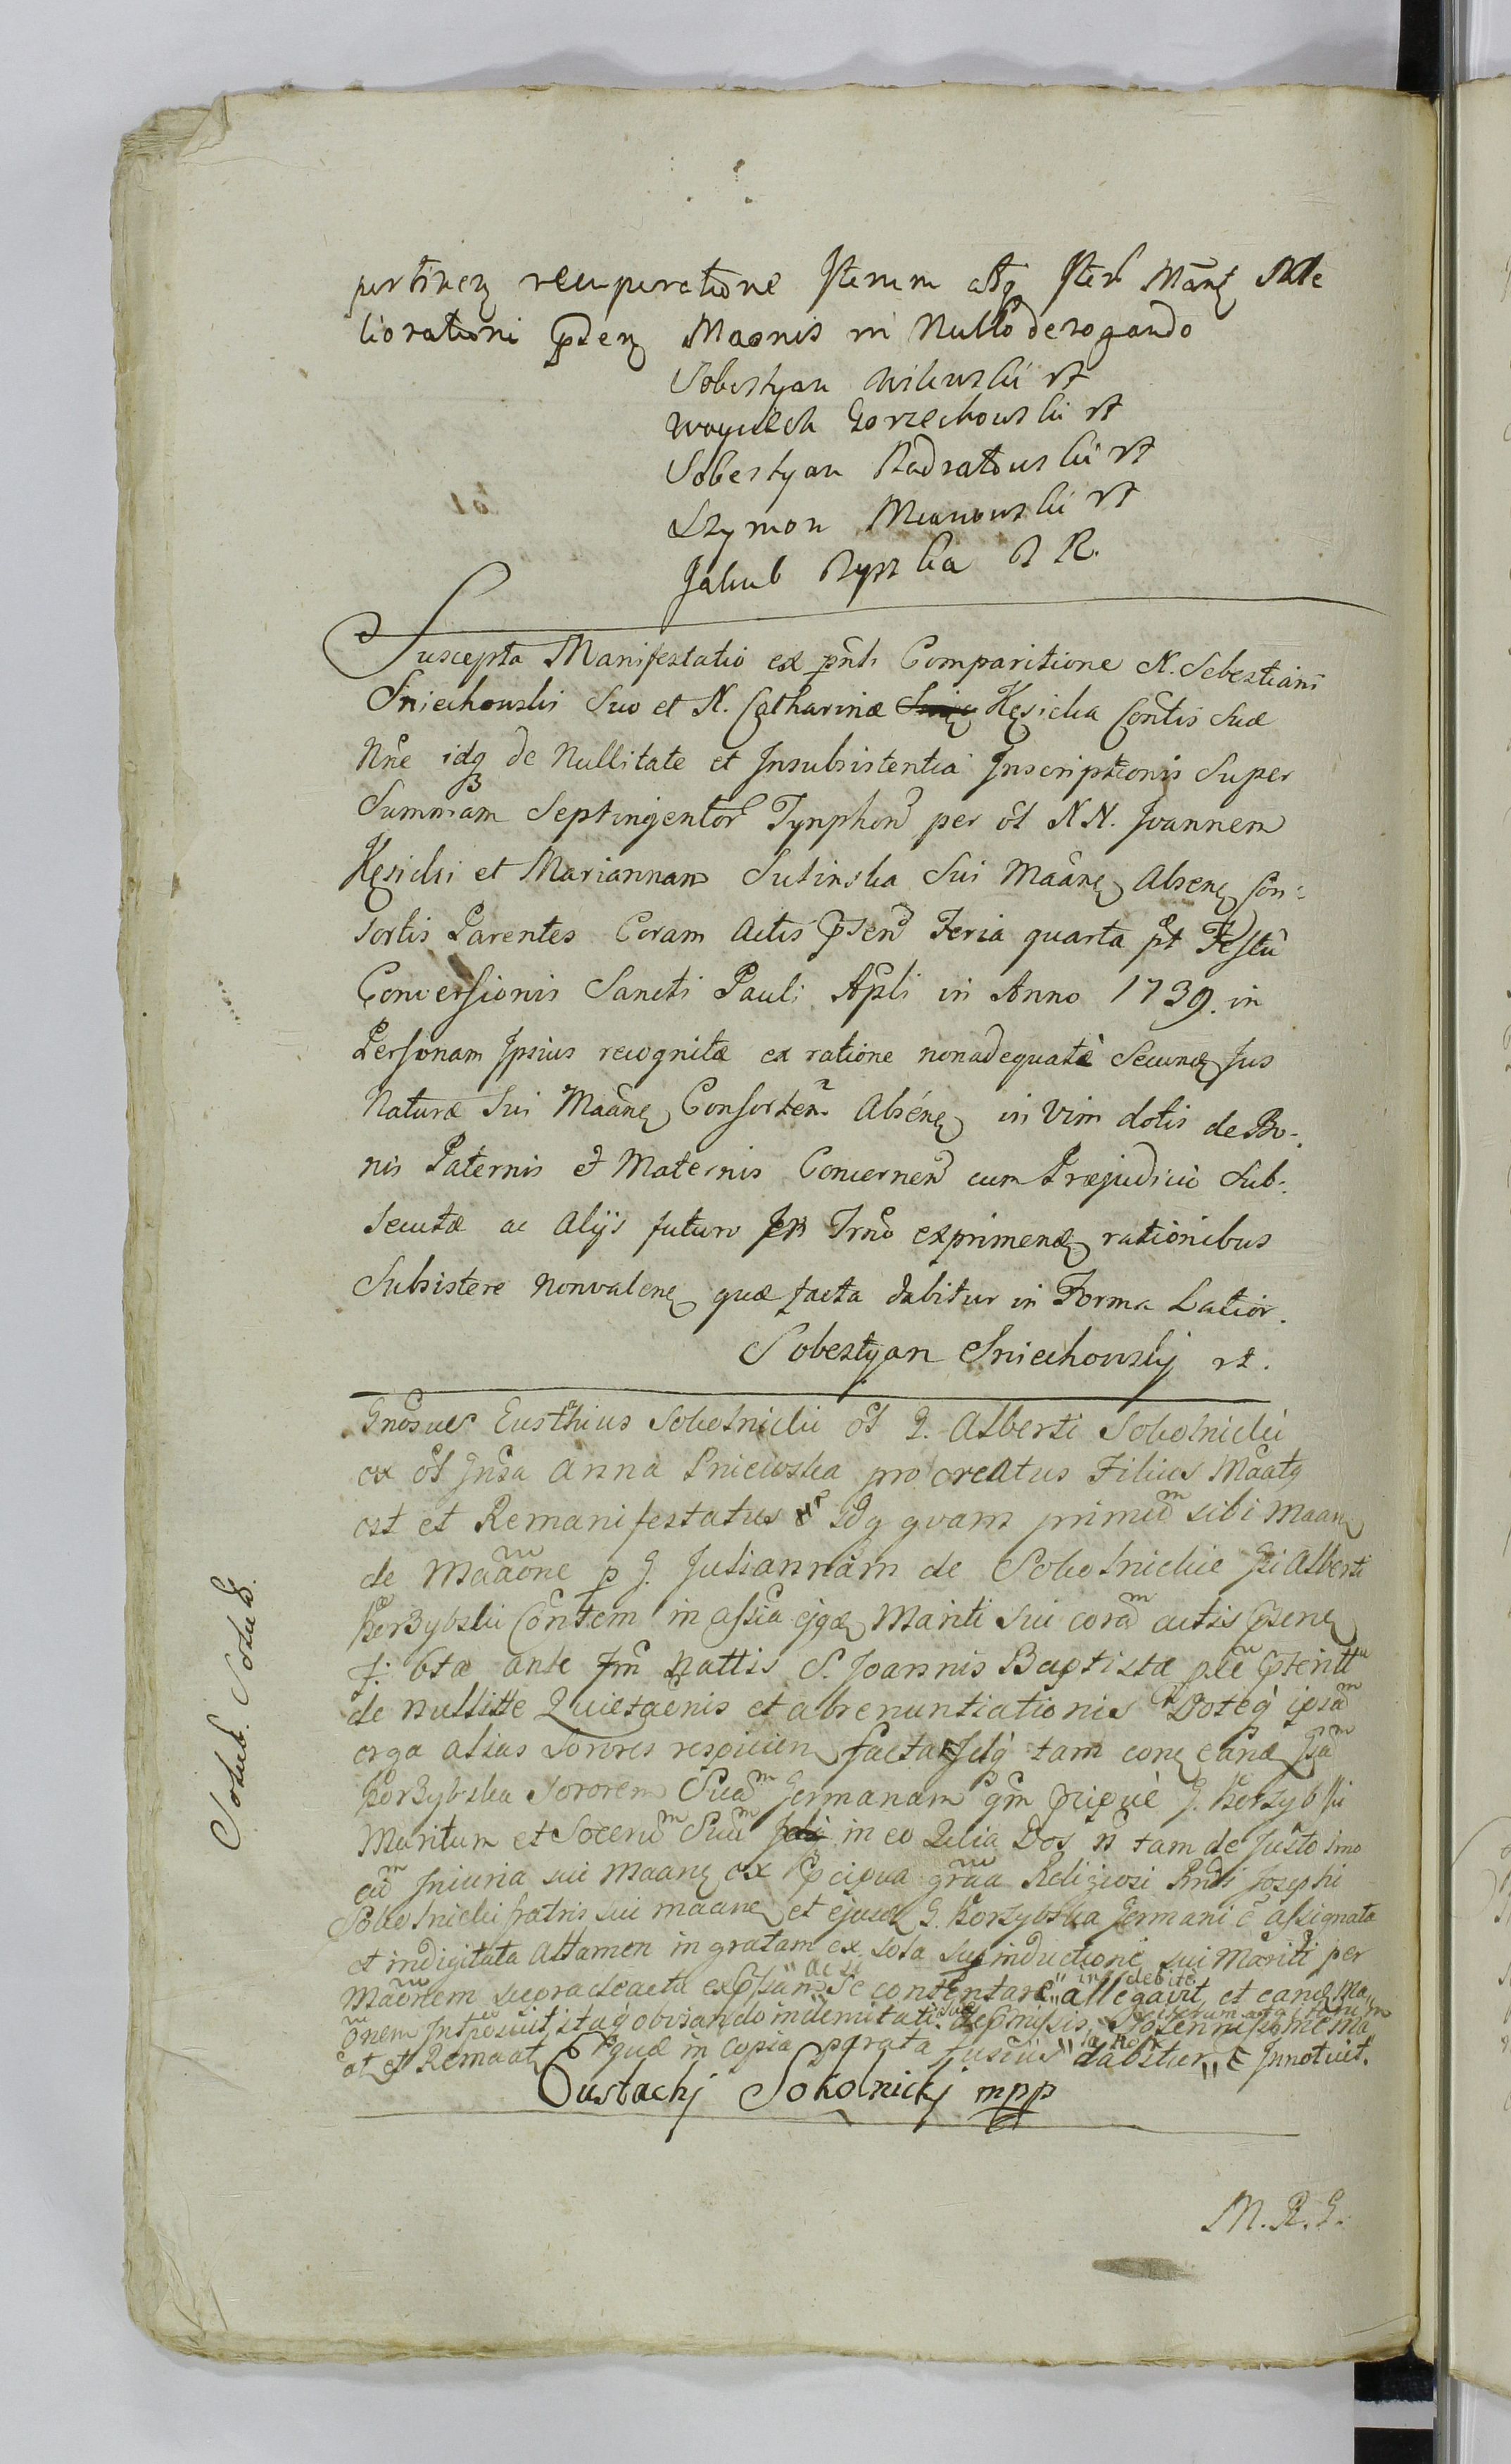 pertinen recuperatione Iterum atq Iter Man Me
liorationi pnsen Maonis in Nullo derogando
Sobestyan Milewski rt
Woyciech Gorzechowski rt
Sobestyan Nadratowski rt
Szymon Mianowski rt
Jakub Rypska A R.
Suscepta Manifestatio ex pnti Comparitione N. Sebestiani
Sniechowski Suo et N. Catharinæ Kęsicka Contis Suæ
Nne idq de Nullitate et Insubsistentia Inscriptionis Super
Summam Septingentor Tynphon per ol N.N. Joannem
Kęsicki et Mariannam Sulinska Sui Maane Absen Con:
sortis Parentes Coram Actis Psen Feria quarta pt Festu
Conversionis Sancti Pauli Apli in Anno 1739. in
Personam Ipsius recognitæ ex ratione nonadequatè Secund Jus
Naturæ Sui Maane Consorten Absene in Vim dotis de Bo:
nis Paternis et Maternis Concernen cum Præjudicio Sub:
secutæ ac Alijs futuro Trno exprimend rationibus
Subsistere Nonvalene quæ facta dabitur in Forma Latior.
Sobestyan Sniechowskj rt.
Gnosus Eusthius Sokolnicki ol G. Alberti Sokolnicki
ex ol Gnsa Anna Pniewska procreatus Filius Maatq
est et Remanifestatus Idq quam primu sibi Maan
de Maaone p G. Juliannam de Sokolnickie Gi Alberti
Korzybski Contem in assia ejqd Mariti sui cora actis Psene
f: 6ta ante Fm Nattis S. Joannis Baptista ple Pterit
de nullitte Quietaonis et abrenuntiationis Doteq ipsa
erga alias Sorores respicien facta Idq tam cone eand Gsa
Korzybska Sororem Sua Germanam qm Pcipuè G. Korzybski
Maritum et Soceru Suu in eo Qlia Dos n tam de Justo imo
cu Iniuria sui Maane ex Pcipua graa Religiosi Rndi Josephi
Sokolnicki fratris sui maane et ejusd G. Korzybska Germani e assignata
et indigitata Attamen in gratam ex sola sug inductione sui Mariti per
Maonem supra de actu expssam ac si Se contentare indebite allegavit et eand Ma
onem Intposuit, itaq obviando indemnitati Suæ Pmissis, Solennissime iterum atq iterum ma
at et Remaat quæ in copia parata fusius la Rois dabitur, e Innotuit.
Eustachj Sokolnickj mpp
Sokol. Sokol.
M. R. G.